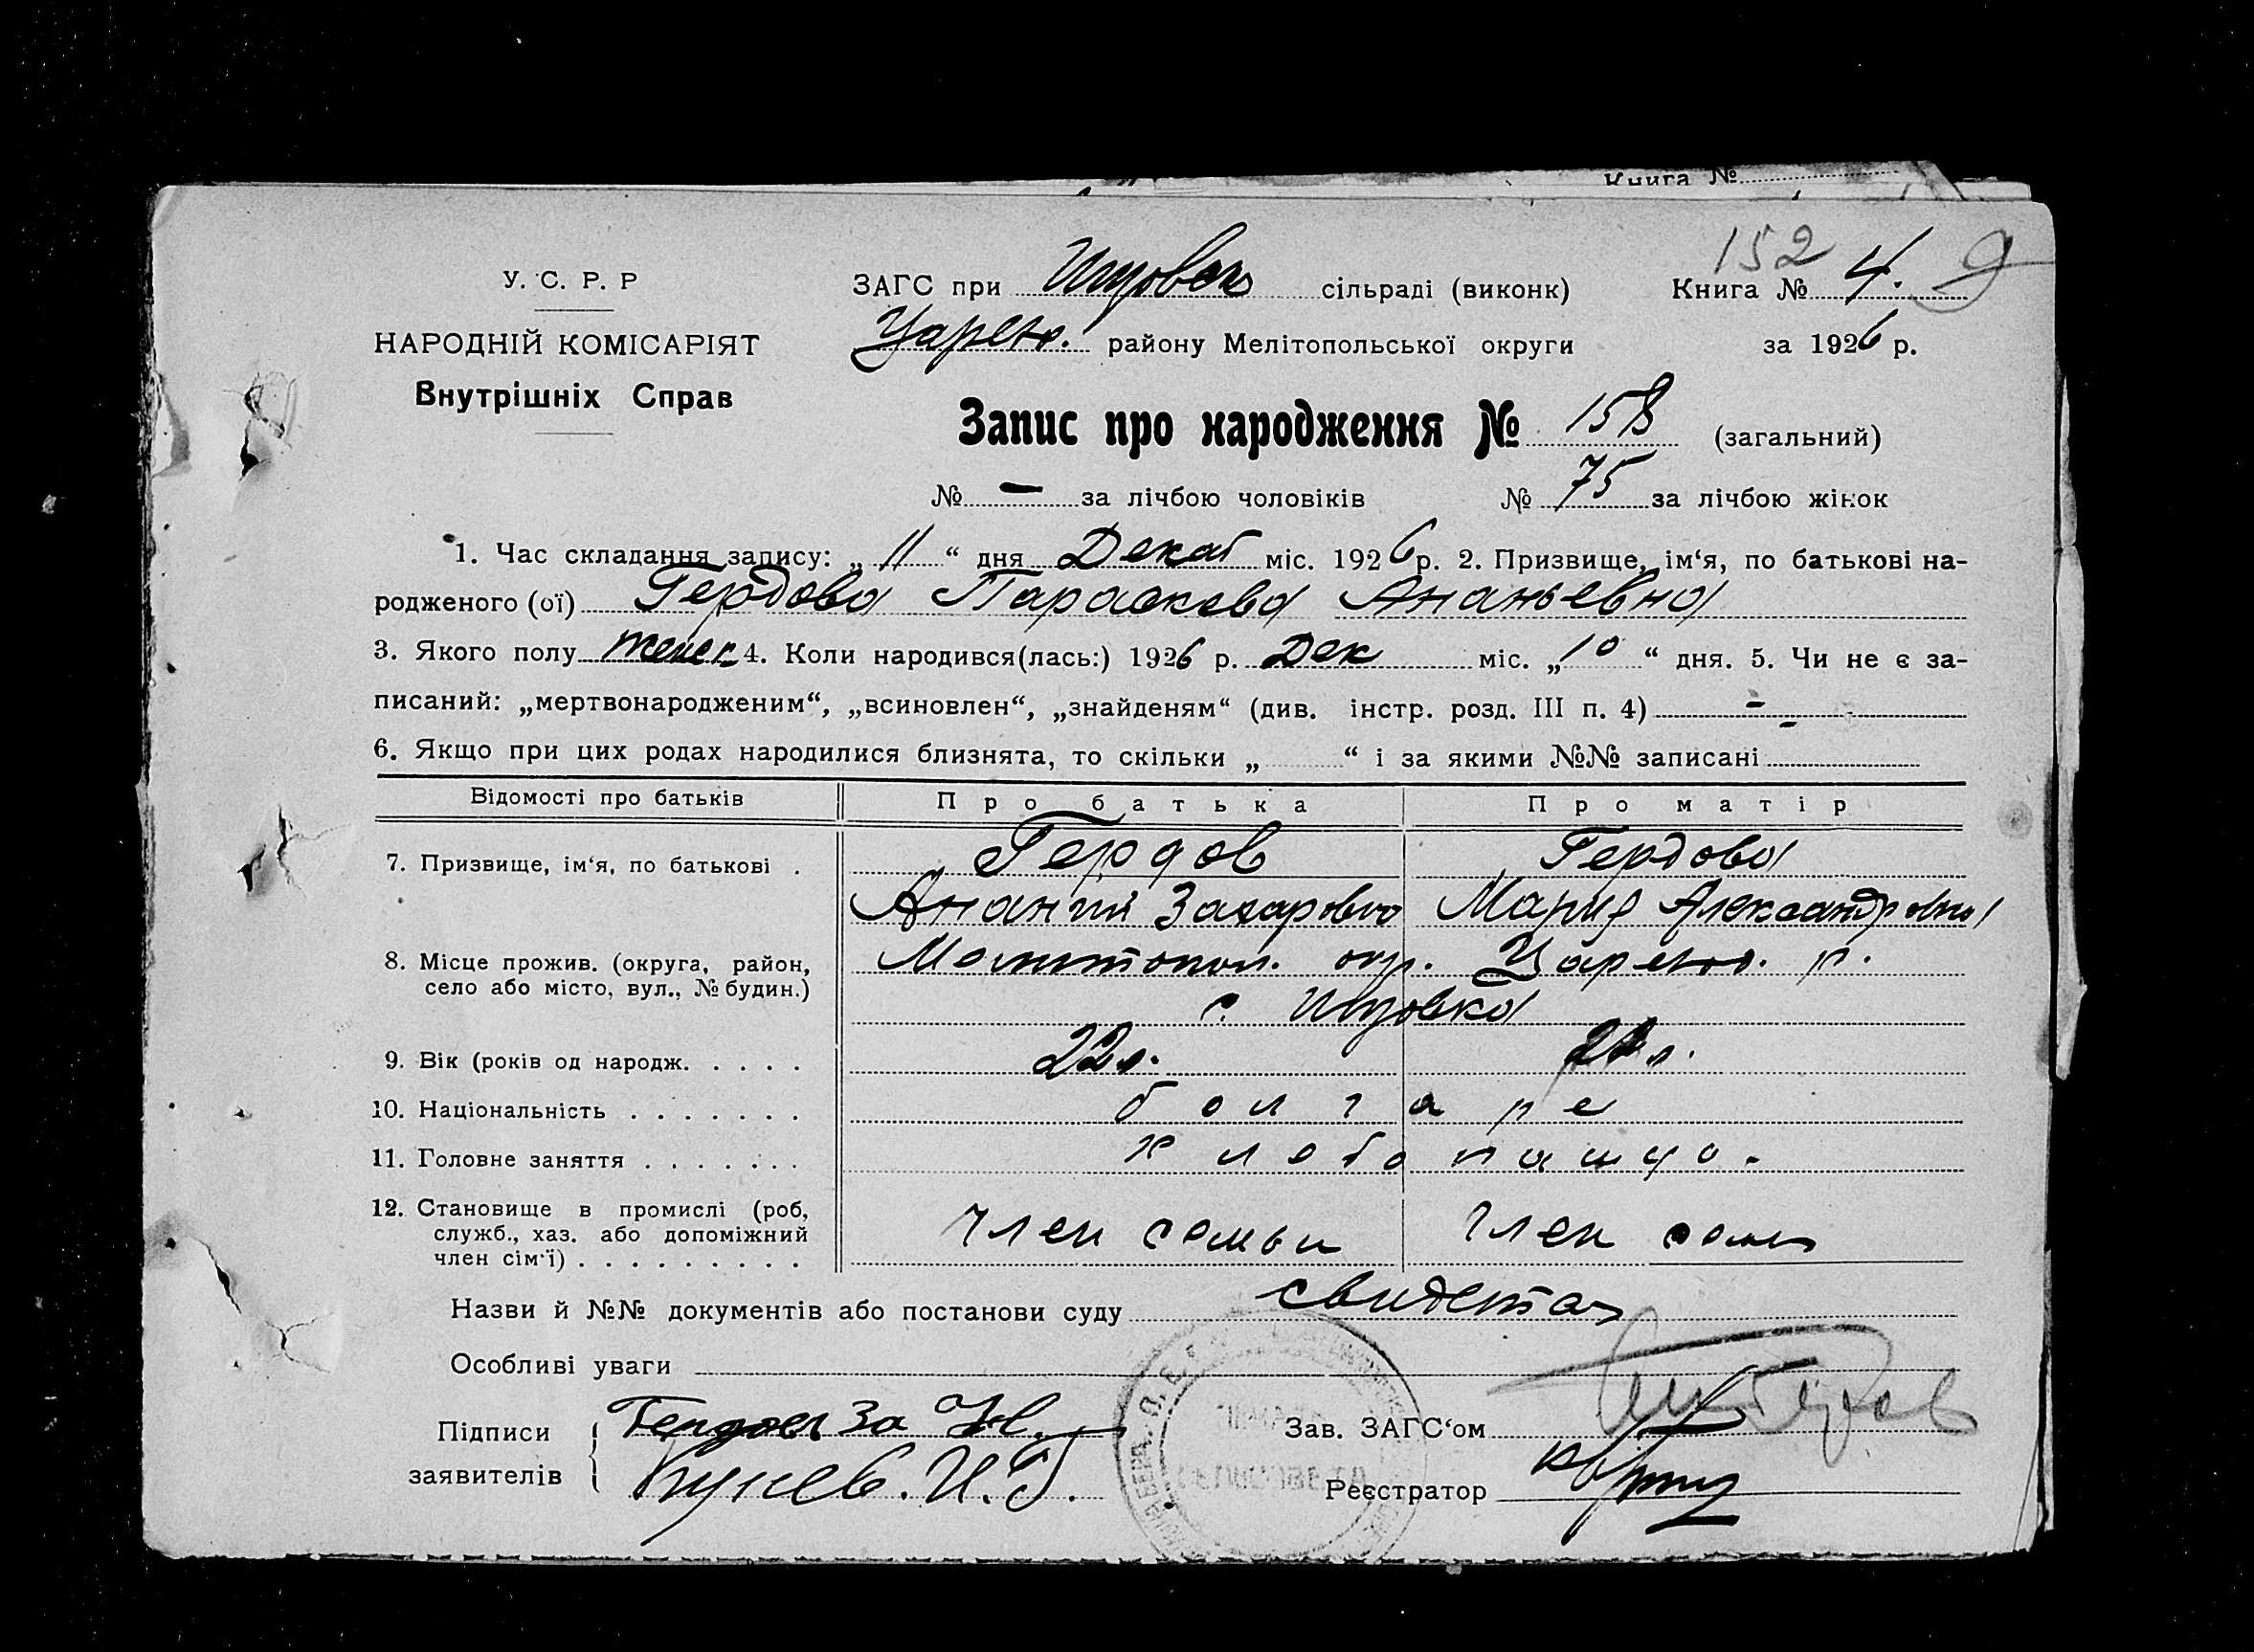 Книга №
152 9
У. С. Р. Р
ЗАГС при сільраді (виконк) Книга № 4.
НАРОДНІЙ КОМІСАРІЯТ
Царев. району Мелітопольської округи за 1926 р.
Внутрішніх Справ
Запис про народження № 158 (загальний)
№ – за лічбою чоловіків № 75 за лічбою жінок
1. Час складання запису: „ 11 “ дня Декаб міс. 1926 р. 2. Призвище, ім‘я, по батькові на-
родженого (ої) Гердова Параскева Ананьевна
3. Якого полу женск 4. Коли народився(лась:) 1926 р. Дек міс. „ 10 “ дня. 5. Чи не є за-
писаний: „мертвонародженим“, „всиновлен“, „знайденям“ (див. інстр. розд. III п. 4) - -
6. Якщо при цих родах народилися близнята, то скільки „ “ і за якими №№ записані
Відомості про батьків Про батька Про матір
7. Призвище, ім‘я, по батькові . Гердов Гердова
Ананий Захарович Мария Александровна
8. Місце прожив. (округа, район, Мелитопол. окр. р.
село або місто, вул., № будин.) с.
9. Вік (років од народж. . . . . 22 л. л.
10. Національність . . . . . . . болгаре
11. Головне заняття . . . . . . . хлебопашц.
12. Становище в промислі (роб,
служб., хаз. або допоміжний член семьи член семьи
член сім‘ї) . . . . . . . . .
Назви й №№ документів або постанови суду
Особливі уваги
Підписи Гердов За
Зав. ЗАГС‘ом
заявителів И. Г.
Реєстратор